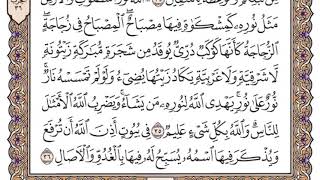 مَثَلُ نُورِهِۦ كَمِشْكَوٰةٍ فِيهَا مِصْبَاحٌ ۖ ٱلْمِصْبَاحُ فِى زُجَاجَةٍ ۖ
ٱلزُّجَاجَةُ كَأَنَّهَا كَوْكَبٌ دُرِّىٌّ يُوقَدُ مِن شَجَرَةٍ مُّبَٰرَكَةٍ زَيْتُونَةٍ
لَّا شَرْقِيَّةٍ وَلَا غَرْبِيَّةٍ يَكَادُ زَيْتُهَا يُضِىٓءُ وَلَوْ لَمْ تَمْسَسْهُ نَارٌ ۚ
نُّورٌ عَلَىٰ نُورٍ ۗ يَهْدِى ٱللَّهُ لِنُورِهِۦ مَن يَشَآءُ ۚ وَيَضْرِبُ ٱللَّهُ ٱلْأَمْثَٰلَ
لِلنَّاسِ ۗ وَٱللَّهُ بِكُلِّ شَىْءٍ عَلِيمٌ ٣٥ فِى بُيُوتٍ أَذِنَ ٱللَّهُ أَن تُرْفَعَ
وَيُذْكَرَ فِيهَا ٱسْمُهُۥ يُسَبِّحُ لَهُۥ فِيهَا بِٱلْغُدُوِّ وَٱلْءَاصَالِ ٣٦